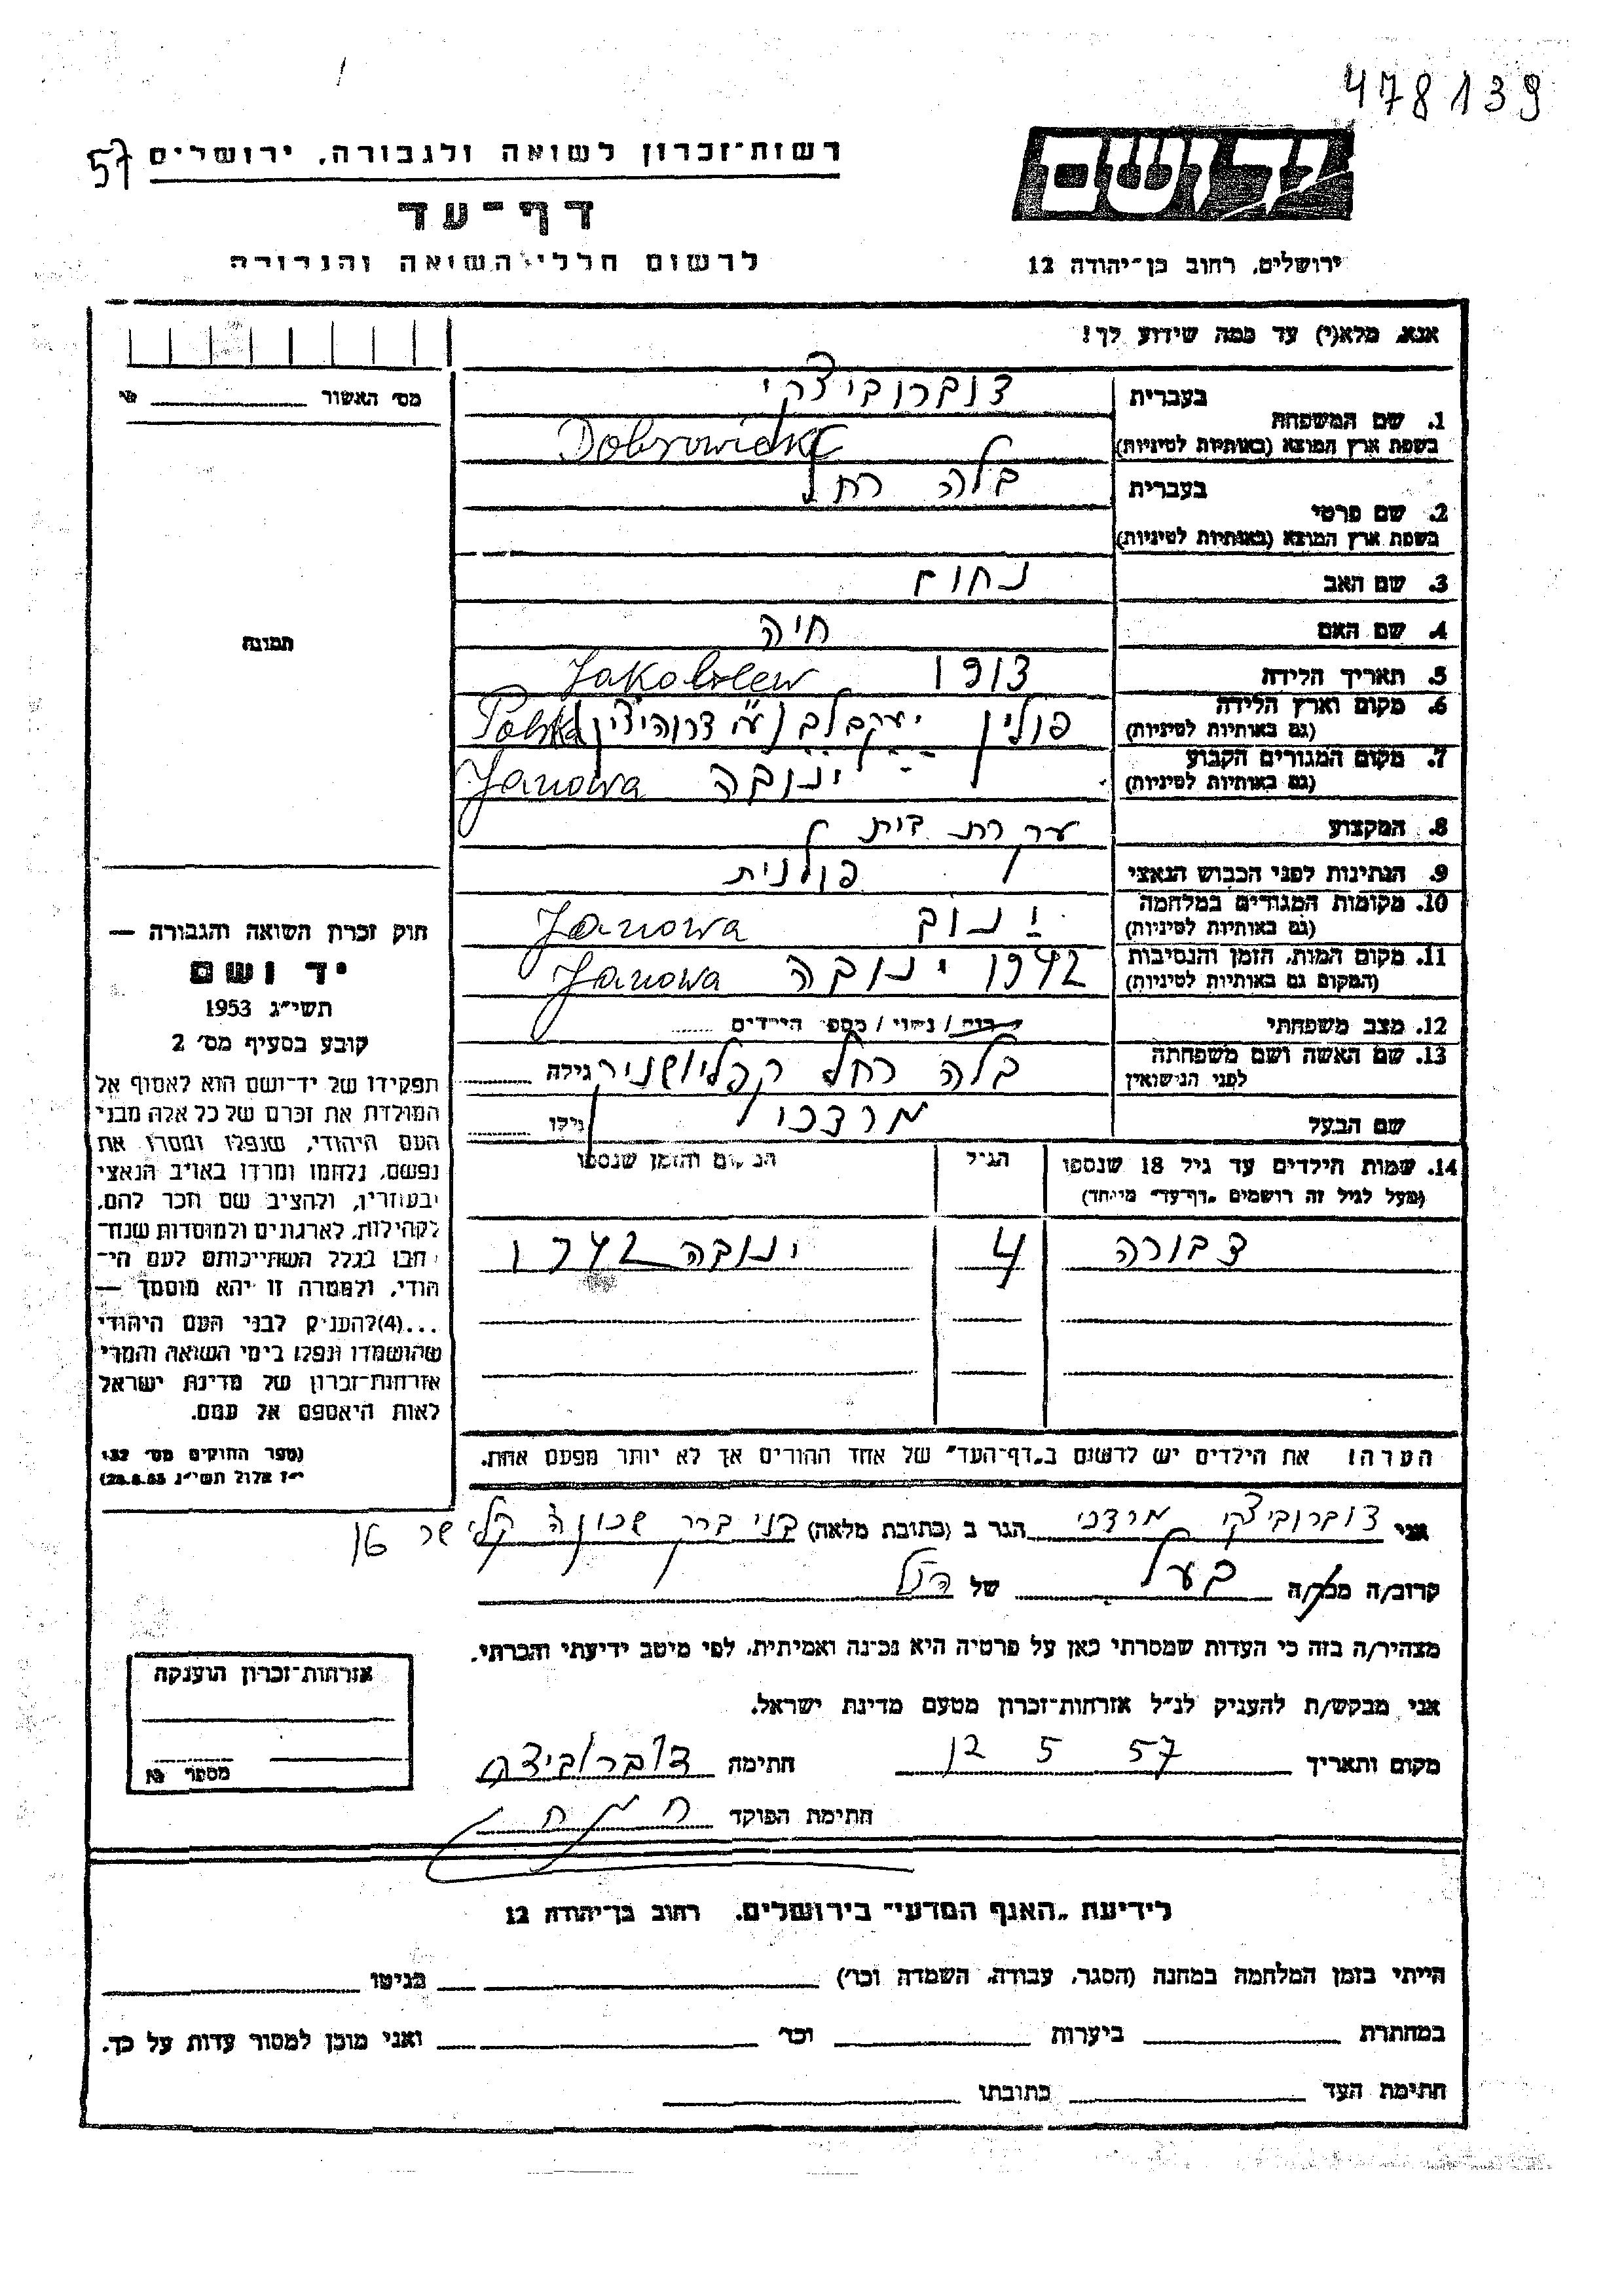 478139
57
רשות־זכרון לשואה ולגבורה, ירושלים
יד ושם
דף־עד
לרשום חללי השואה והגבורה
ירושלים, רחוב בן־יהודה 12
אנא, מלא(י) עד כמה שידוע לך!
מס׳ האשור
בעברית
דוברוביצקי
1. שם המשפחה
בשפת ארץ המוצא (באותיות לטיניות)
בעברית
בלה רחל
2. שם פרטי
בשפת ארץ המוצא (באותיות לטיניות)
3. שם האב נחום
4. שם האם חיה
תמונה
5. תאריך הלידה 1913
Jakoblew
6. מקום וארץ הלידה
(גם באותיות לטיניות)
פולין יעקבלב Polska
7. מקום המגורים הקבוע
(גם באותיות לטיניות)
ינובה Janowa
8. המקצוע עקרת בית
9. הנתינות לפני הכבוש הנאצי פולנית
10. מקומות המגורים במלחמה
(גם באותיות לטיניות)
Janowa
11. מקום המות, הזמן והנסיבות
(המקום גם באותיות לטיניות)
1942 ינובה Janowa
12. מצב משפחתי
רוק / נשוי / מספר הילדים
13. שם האשה ושם משפחתה
לפני הנישואין
בלה רחל גילה
שם הבעל מרדכי גילו
14. שמות הילדים עד גיל 18 שנספו
(מעל לגיל זה רושמים „דף־עד״ מיוחד)
הגיל
המקום והזמן שנספו
דבורה 4 ינובה 1942
הערה: את הילדים יש לרשום ב„דף־העד״ של אחד ההורים אך לא יותר מפעם אחת.
חוק זכרון השואה והגבורה —
יד ושם
תשי״ג 1953
קובע בסעיף מס׳ 2
תפקידו של יד־ושם הוא לאסוף אל
המולדת את זכרם של כל אלה מבני
העם היהודי, שנפלו ומסרו את
נפשם, נלחמו ומרדו באויב הנאצי
ובעוזריו, ולהציב שם וזכר להם,
לקהילות, לארגונים ולמוסדות שנח־
רבו בגלל השתייכותם לעם הי־
הודי, ולמטרה זו יהא מוסמך —
...(4) להעניק לבני העם היהודי
שהושמדו ונפלו בימי השואה והמרי
אזרחות־זכרון של מדינת ישראל
לאות היאספם אל עמם.
(ספר החוקים מס׳ 132
י״ז אלול תשי״ג 28.8.53)
אני דוברוביצקי מרדכי הגר ב (כתובת מלאה) בני ברק שכונה
קרוב/ה מכר/ה בעל של הנ״ל
מצהיר/ה בזה כי העדות שמסרתי כאן על פרטיה היא נכונה ואמיתית, לפי מיטב ידיעתי והכרתי.
אני מבקש/ת להעניק לנ״ל אזרחות־זכרון מטעם מדינת ישראל.
מקום ותאריך 12 5 57 חתימה דוברוביצקי
חתימת הפוקד
אזרחות־זכרון הוענקה
מספר
לידיעת „האגף המדעי״ בירושלים, רחוב בן־יהודה 12
הייתי בזמן המלחמה במחנה (הסגר, עבודה, השמדה וכו׳) בגיטו
במחתרת ביערות וכו׳ ואני מוכן למסור עדות על כך.
חתימת העד כתובתו